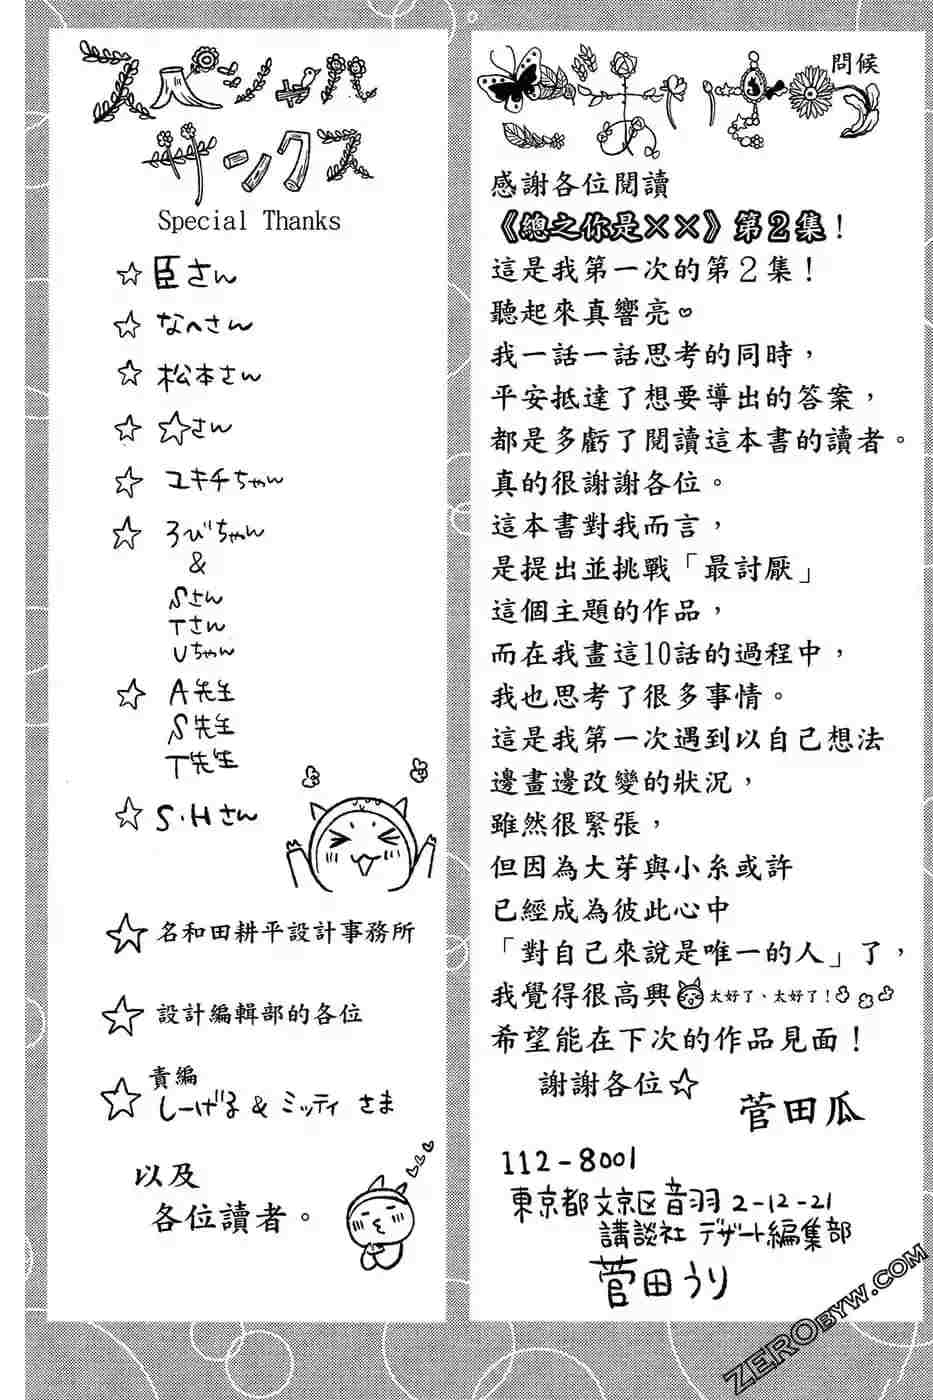 スペシャル
サンクス
Special Thanks
☆臣さん
☆なへさん
☆松本さん
☆☆さん
☆ユキチちゃん
☆ろびちゃん
&
Sさん
Tさん
Uちゃん
☆A先生
S先生
T先生
☆S.Hさん
☆名和田耕平設計事務所
☆設計編輯部的各位
責編
☆しーげる & ミッティ さま
以及
各位讀者。
問候
感謝各位閱讀
《總之你是××》第2集！
這是我第一次的第2集！
聽起來真響亮♡
我一話一話思考的同時，
平安抵達了想要導出的答案，
都是多虧了閱讀這本書的讀者。
真的很謝謝各位。
這本書對我而言，
是提出並挑戰「最討厭」
這個主題的作品，
而在我畫這10話的過程中，
我也思考了很多事情。
這是我第一次遇到以自己想法
邊畫邊改變的狀況，
雖然很緊張，
但因為大芽與小糸或許
已經成為彼此心中
「對自己來說是唯一的人」了，
我覺得很高興 太好了、太好了！
希望能在下次的作品見面！
謝謝各位☆
菅田瓜
112-8001
東京都文京区音羽2-12-21
講談社 デザート編集部
菅田うり
ZEROBYW.COM